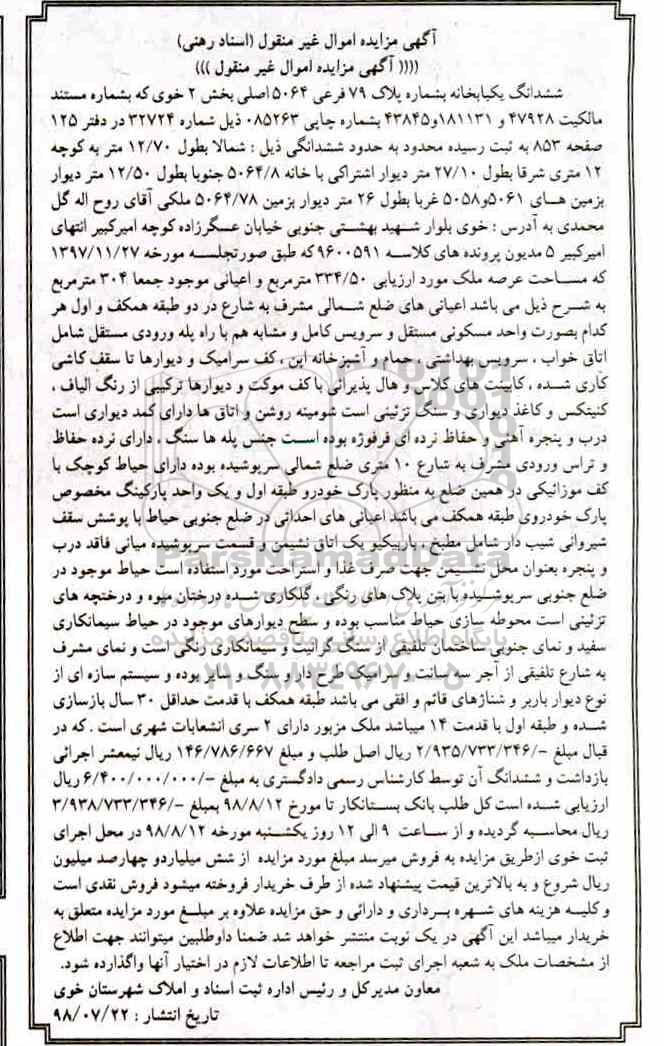 آگهی مزایده اموال غیر منقول (اسناد رهنی)
(((( آگهی مزایده اموال غیر منقول )))
ششدانگ یکبابخانه بشماره پلاک ۷۹ فرعی ۵۰۶۴ اصلی بخش ۲ خوی که بشماره مستند
مالکیت ۴۷۹۲۸ و ۱۸۱۱۳۱ و۴۳۸۴۵ بشماره چاپی ۰۸۵۲۶۳ ذیل شماره ۳۲۷۲۴ در دفتر ۱۲۵
صفحه ۸۵۳ به ثبت رسیده محدود به حدود ششدانگی ذیل : شمالا بطول ۱۲/۷۰ متر به کوچه
۱۲ متری شرقا بطول ۲۷/۱۰ متر دیوار اشتراکی با خانه ۵۰۶۴/۸ جنوبا بطول ۱۲/۵۰ متر دیوار
بزمین هــای ۵۰۶۱و۵۰۵۸ غربا بطول ۲۶ متر دیوار بزمین ۵۰۶۴/۷۸ ملکی آقای روح اله گل
محمدی به آدرس : خوی بلوار شــهید بهشــتی جنوبی خیابان عسگرزاده کوچه امیرکبیر انتهای
امیرکبیر ۵ مدیون پرونده های کلاسـه ۹۶۰۰۵۹۱ که طبق صورتجلسـه مورخه ۱۳۹۷/۱۱/۲۷
که مســاحت عرصه ملک مورد ارزیابی ۳۳۴/۵۰ مترمربع و اعیانی موجود جمعا ۳۰۴ مترمربع
به شــرح ذیل می باشد اعیانی های ضلع شــمالی مشرف به شارع در دو طبقه همکف و اول هر
کدام بصورت واحد مسکونی مستقل و سرویس کامل و مشابه هم با راه پله ورودی مستقل شامل
اتاق خواب ، سرویس بهداشتی ، حمام و آشپزخانه اپن ، کف سرامیک و دیوارها تا سقف کاشی
کاری شــده ، کابینت های کلاس و هال پذیرائی با کف موکت و دیوارها ترکیبی از رنگ الیاف ،
کنیتکس و کاغذ دیواری و سنگ تزئینی است شومینه روشن و اتاق ها دارای کمد دیواری است
درب و پنجره آهنی و حفاظ نرده ای فرفوژه بوده اســت جنس پله ها سنگ ، دارای نرده حفاظ
و تراس ورودی مشرف به شارع ۱۰ متری ضلع شمالی سرپوشیده بوده دارای حیاط کوچک با
کف موزائیکی در همین ضلع به منظور پارک خودرو طبقه اول و یک واحد پارکینگ مخصوص
پارک خودروی طبقه همکف می باشد اعیانی های احداثی در ضلع جنوبی حیاط با پوشش سقف
شیروانی شیب دار شامل مطبخ ، باربیکیو یک اتاق نشیمن و قسمت سرپوشیده میانی فاقد درب
و پنجره بعنوان محل نشیمن جهت صرف غذا و استراحت مورد استفاده است حیاط موجود در
ضلع جنوبی سرپوشـیده با بتن پلاک های رنگی ، گلکاری شــده درختان میوه و درختچه های
تزئینی است محوطه سازی حیاط مناسب بوده و سطح دیوارهای موجود در حیاط سیمانکاری
سفید و نمای جنوبی ساختمان تلفیقی از سنگ گرانیت و سیمانکاری رنگی است و نمای مشرف
به شارع تلفیقی از آجر سه سانت و سرامیک طرح دار و سنگ و سایر بوده و سیستم سازه ای از
نوع دیوار باربر و شناژهای قائم و افقی می باشد طبقه همکف با قدمت حداقل ۳۰ سال بازسازی
شــده و طبقه اول با قدمت ۱۴ میباشد ملک مزبور دارای ۲ سری انشعابات شهری است . که در
قبال مبلغ -/۲/۹۳۵/۷۳۳/۳۴۶ ریال اصل طلب و مبلغ ۱۴۶/۷۸۶/۶۶۷ ریال نیمعشر اجرائی
بازداشت و ششدانگ آن توسط کارشناس رسمی دادگستری به مبلغ -/۶/۴۰۰/۰۰۰/۰۰۰ ریال
ارزیابی شــده است کل طلب بانک بســتانکار تا مورخ ۹۸/۸/۱۲ بمبلغ -/۳/۹۳۸/۷۳۳/۳۴۶
ریال محاســبه گردیده و از ســاعت ۹ الی ۱۲ روز یکشــنبه مورخه ۹۸/۸/۱۲ در محل اجرای
ثبت خوی ازطریق مزایده به فروش میرسد مبلغ مورد مزایده از شش میلیاردو چهارصد میلیون
ریال شروع و به بالاترین قیمت پیشنهاد شده از طرف خریدار فروخته میشود فروش نقدی است
و کلیــه هزینه های شــهره بــرداری و دارائی و حق مزایده علاوه بر مبلــغ مورد مزایده متعلق به
خریدار میباشد این آگهی در یک نوبت منتشر خواهد شد ضمنا داوطلبین میتوانند جهت اطلاع
از مشخصات ملک به شعبه اجرای ثبت مراجعه تا اطلاعات لازم در اختیار آنها واگذارده شود.
معاون مدیرکل و رئیس اداره ثبت اسناد و املاک شهرستان خوی
تاریخ انتشار : ۹۸/۰۷/۲۲
ParsNamadData
پایگاه اطلاع رسانی مناقصه و مزایده
۰۲۱-۸۸۳۴۹۶۷۰-۵